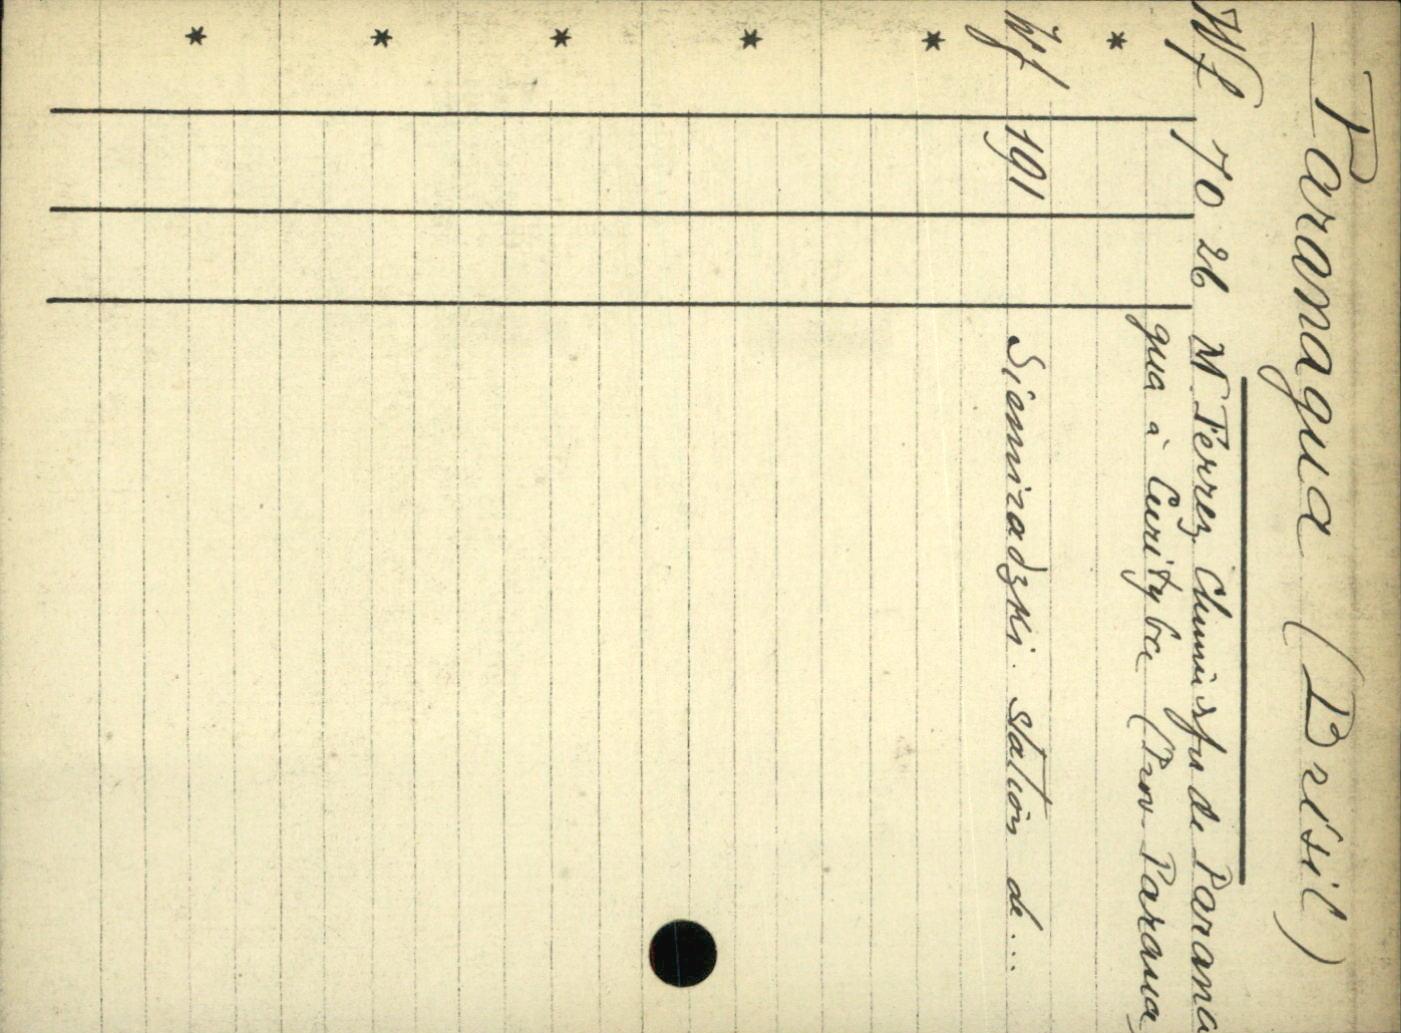 Paranagua (Brésil)
Wf 70 26 M. Ferrez. de Parana
gua à Curityba (Prov. Parana)
*
Wf 191 Siemiradzki. station de...
*
*
*
*
*